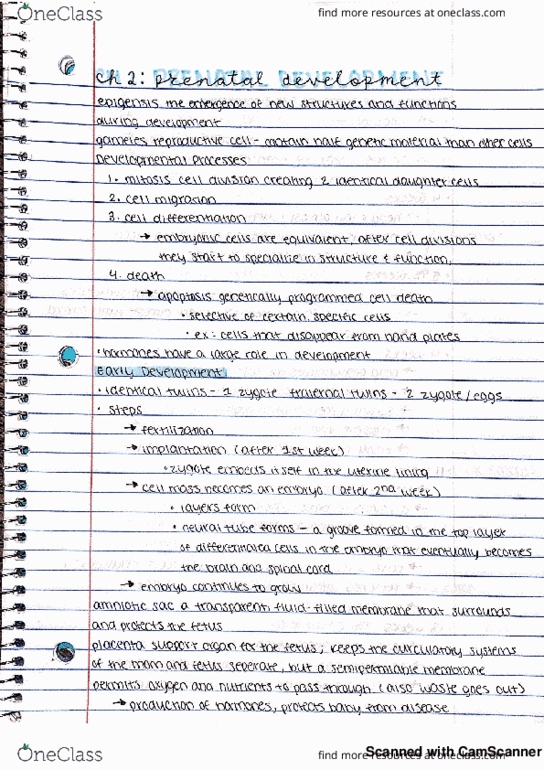 OneClass
find more resources at oneclass.com
Ch 2: prenatal development
epigensis the emergence of new structures and functions
during development
gametes reproductive cell - contain half genetic material than other cells
Developmental Processes
1. mitosis cell division creating 2 identical daughter cells
2. cell migration
3. cell differentiation
→ embryonic cells are equivalent, after cell divisions
they start to specialize in structure & function.
4. death
→ apoptosis genetically programmed cell death
• selective of certain, specific cells
• ex: cells that disappear from hand plates
• hormones have a large role in development
Early Development
• identical twins - 1 zygote fraternal twins - 2 zygote/eggs
• steps
→ fertilization
→ implantation (after 1st week)
• zygote embeds itself in the uterine lining
→ cell mass becomes an embryo (after 2nd week)
• layers form
• neural tube forms - a groove formed in the top layer
of differentiated cells in the embryo that eventually becomes
the brain and spinal cord
→ embryo continues to grow
amniotic sac a transparent fluid-filled membrane that surrounds
and protects the fetus
placenta support organ for the fetus; keeps the circulatory systems
of the mom and fetus seperate, but a semipermiable membrane
permits oxygen and nutrients to pass through (also waste goes out)
→ production of hormones, protects baby from disease
OneClass
find more resources at oneclass.com
Scanned with CamScanner